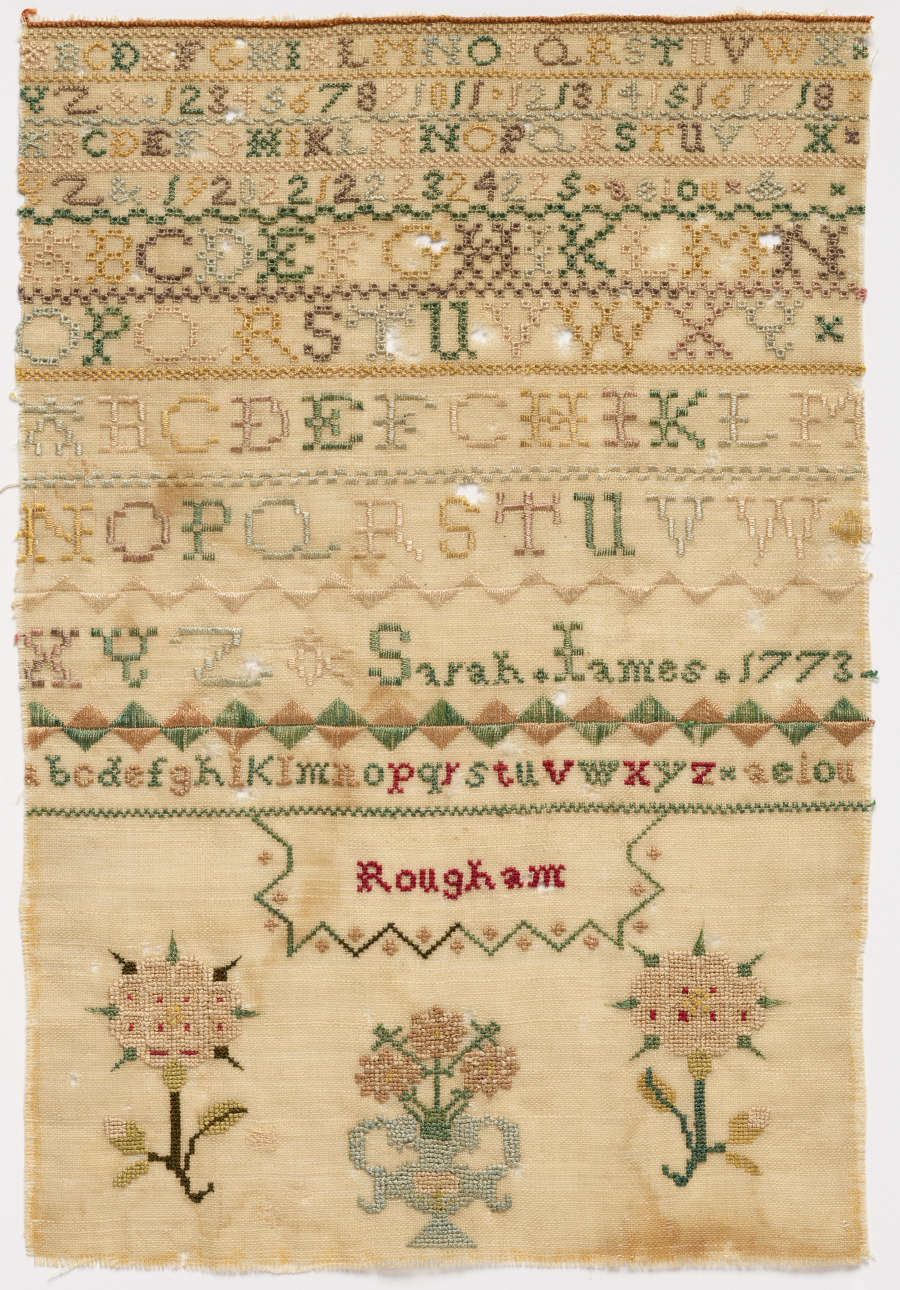 A B C D E F G H I K L M N O P Q R S T U V W X
Y Z & 1 2 3 4 5 6 7 8 9 10 11 12 13 14 15 16 17 18
A B C D E F G H I K L M N O P Q R S T U V W X
Y Z & 1920221222324225 a e i o u
A B C D E F G H I K L M N
O P Q R S T U V W X Y
A B C D E F G H I K L M
N O P Q R S T U V W
X Y Z Sarah Iames 1773
a b c d e f g h i k l m n o p q r s t u v w x y z a e i o u
Rougham